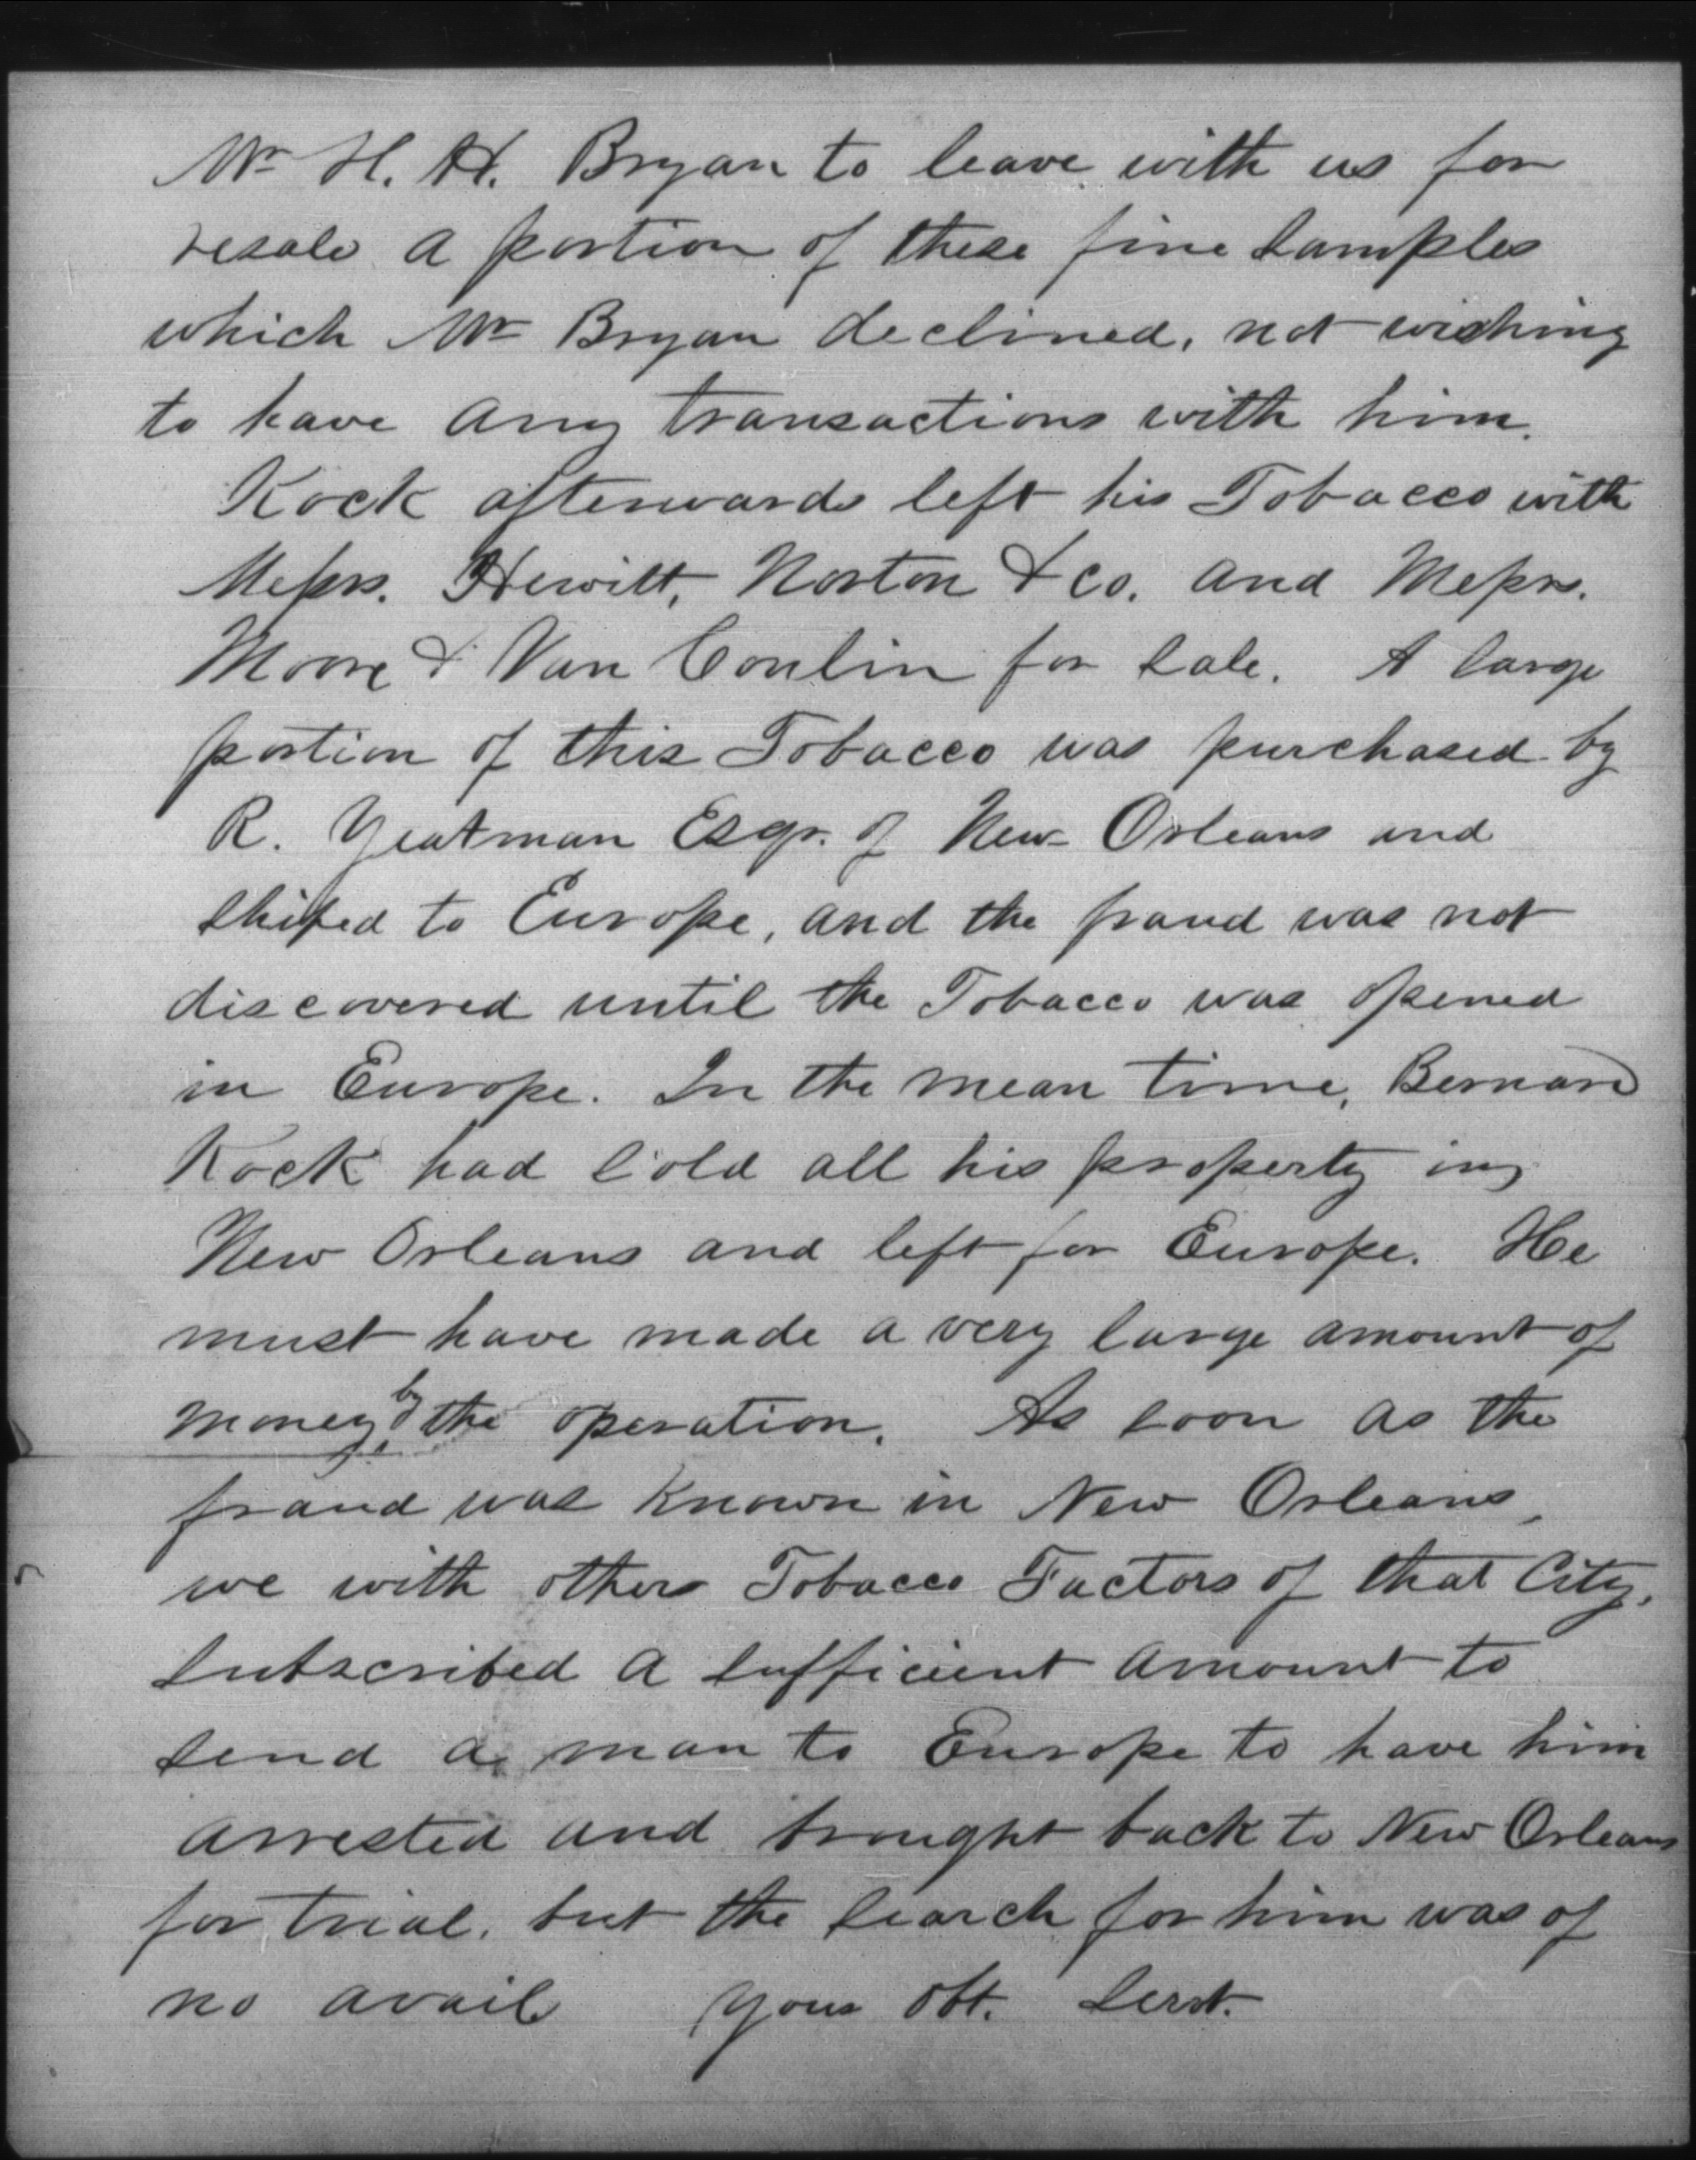 Mr H. H. Bryan to leave with us for
resale a portion of these fine samples
which Mr Bryan declined, not wishing
to have any transactions with him.
Kock afterwards left his Tobacco with
Messrs. Hewitt, Norton & co. and Messrs.
Moore & Van Conlin for sale. A large
portion of this Tobacco was purchased by
R. Yeatman Esqr. of New Orleans and
shiped to Europe, and the fraud was not
discovered until the Tobacco was opened
in Europe. In the mean time, Bernard
Kock had sold all his property in
New Orleans and left for Europe. He
must have made a very large amount of
money by the operation. As soon as the
fraud was known in New Orleans,
we with other Tobacco Factors of that City,
subscribed a sufficient amount to
send a man to Europe to have him
arrested and brought back to New Orleans
for trial, but the search for him was of
no avail your obt. servt.